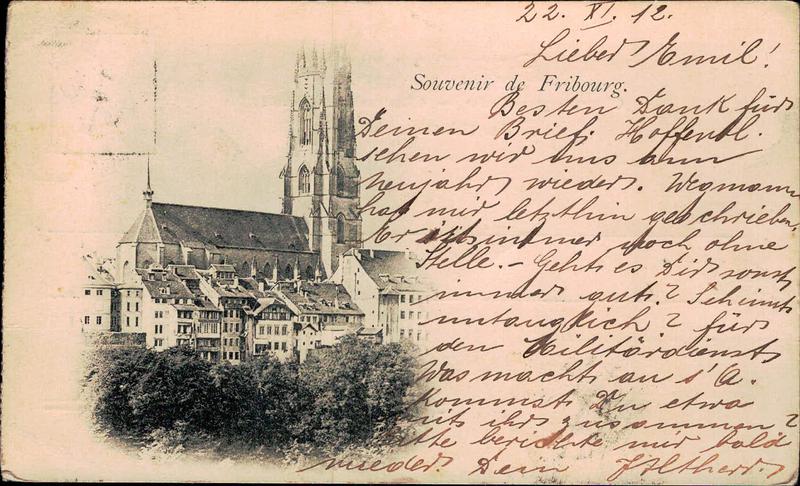 22. XI. 12.
Lieber Emil!
Souvenir de Fribourg.
Besten Dank für
Deinen Brief. Hoffentl.
sehen wir uns am
Neujahr wieder. Wegmann
hat mir letzthin geschrieben.
Er ist immer noch ohne
Stelle. - Geht es Dir sonst
immer gut? Scheints
untauglich? für
den Militärdienst
Was macht
Kommst Du etwa
mit ihr zusammen?
Bitte berichte mir bald
wieder. Dein